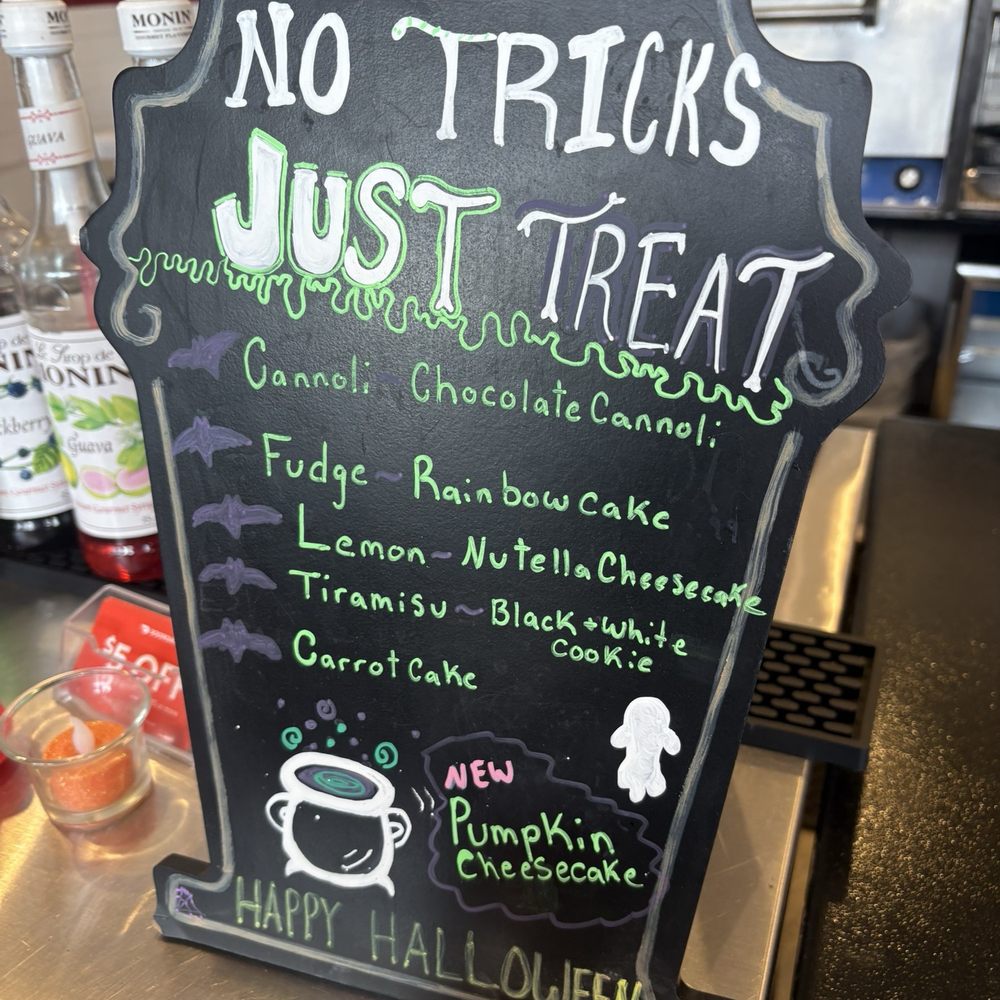 MONIN
NO TRICKS
JUST TREAT
Cannoli ~ Chocolate Cannoli
Fudge ~ Rainbow cake
Lemon ~ Nutella Cheesecake
Tiramisu ~ Black + white
Cookie
Carrot Cake
NEW
Pumpkin
Cheesecake
HAPPY HALLOWEEN
GUAVA
Le Sirop de
MONIN
Guava
$5 OFF